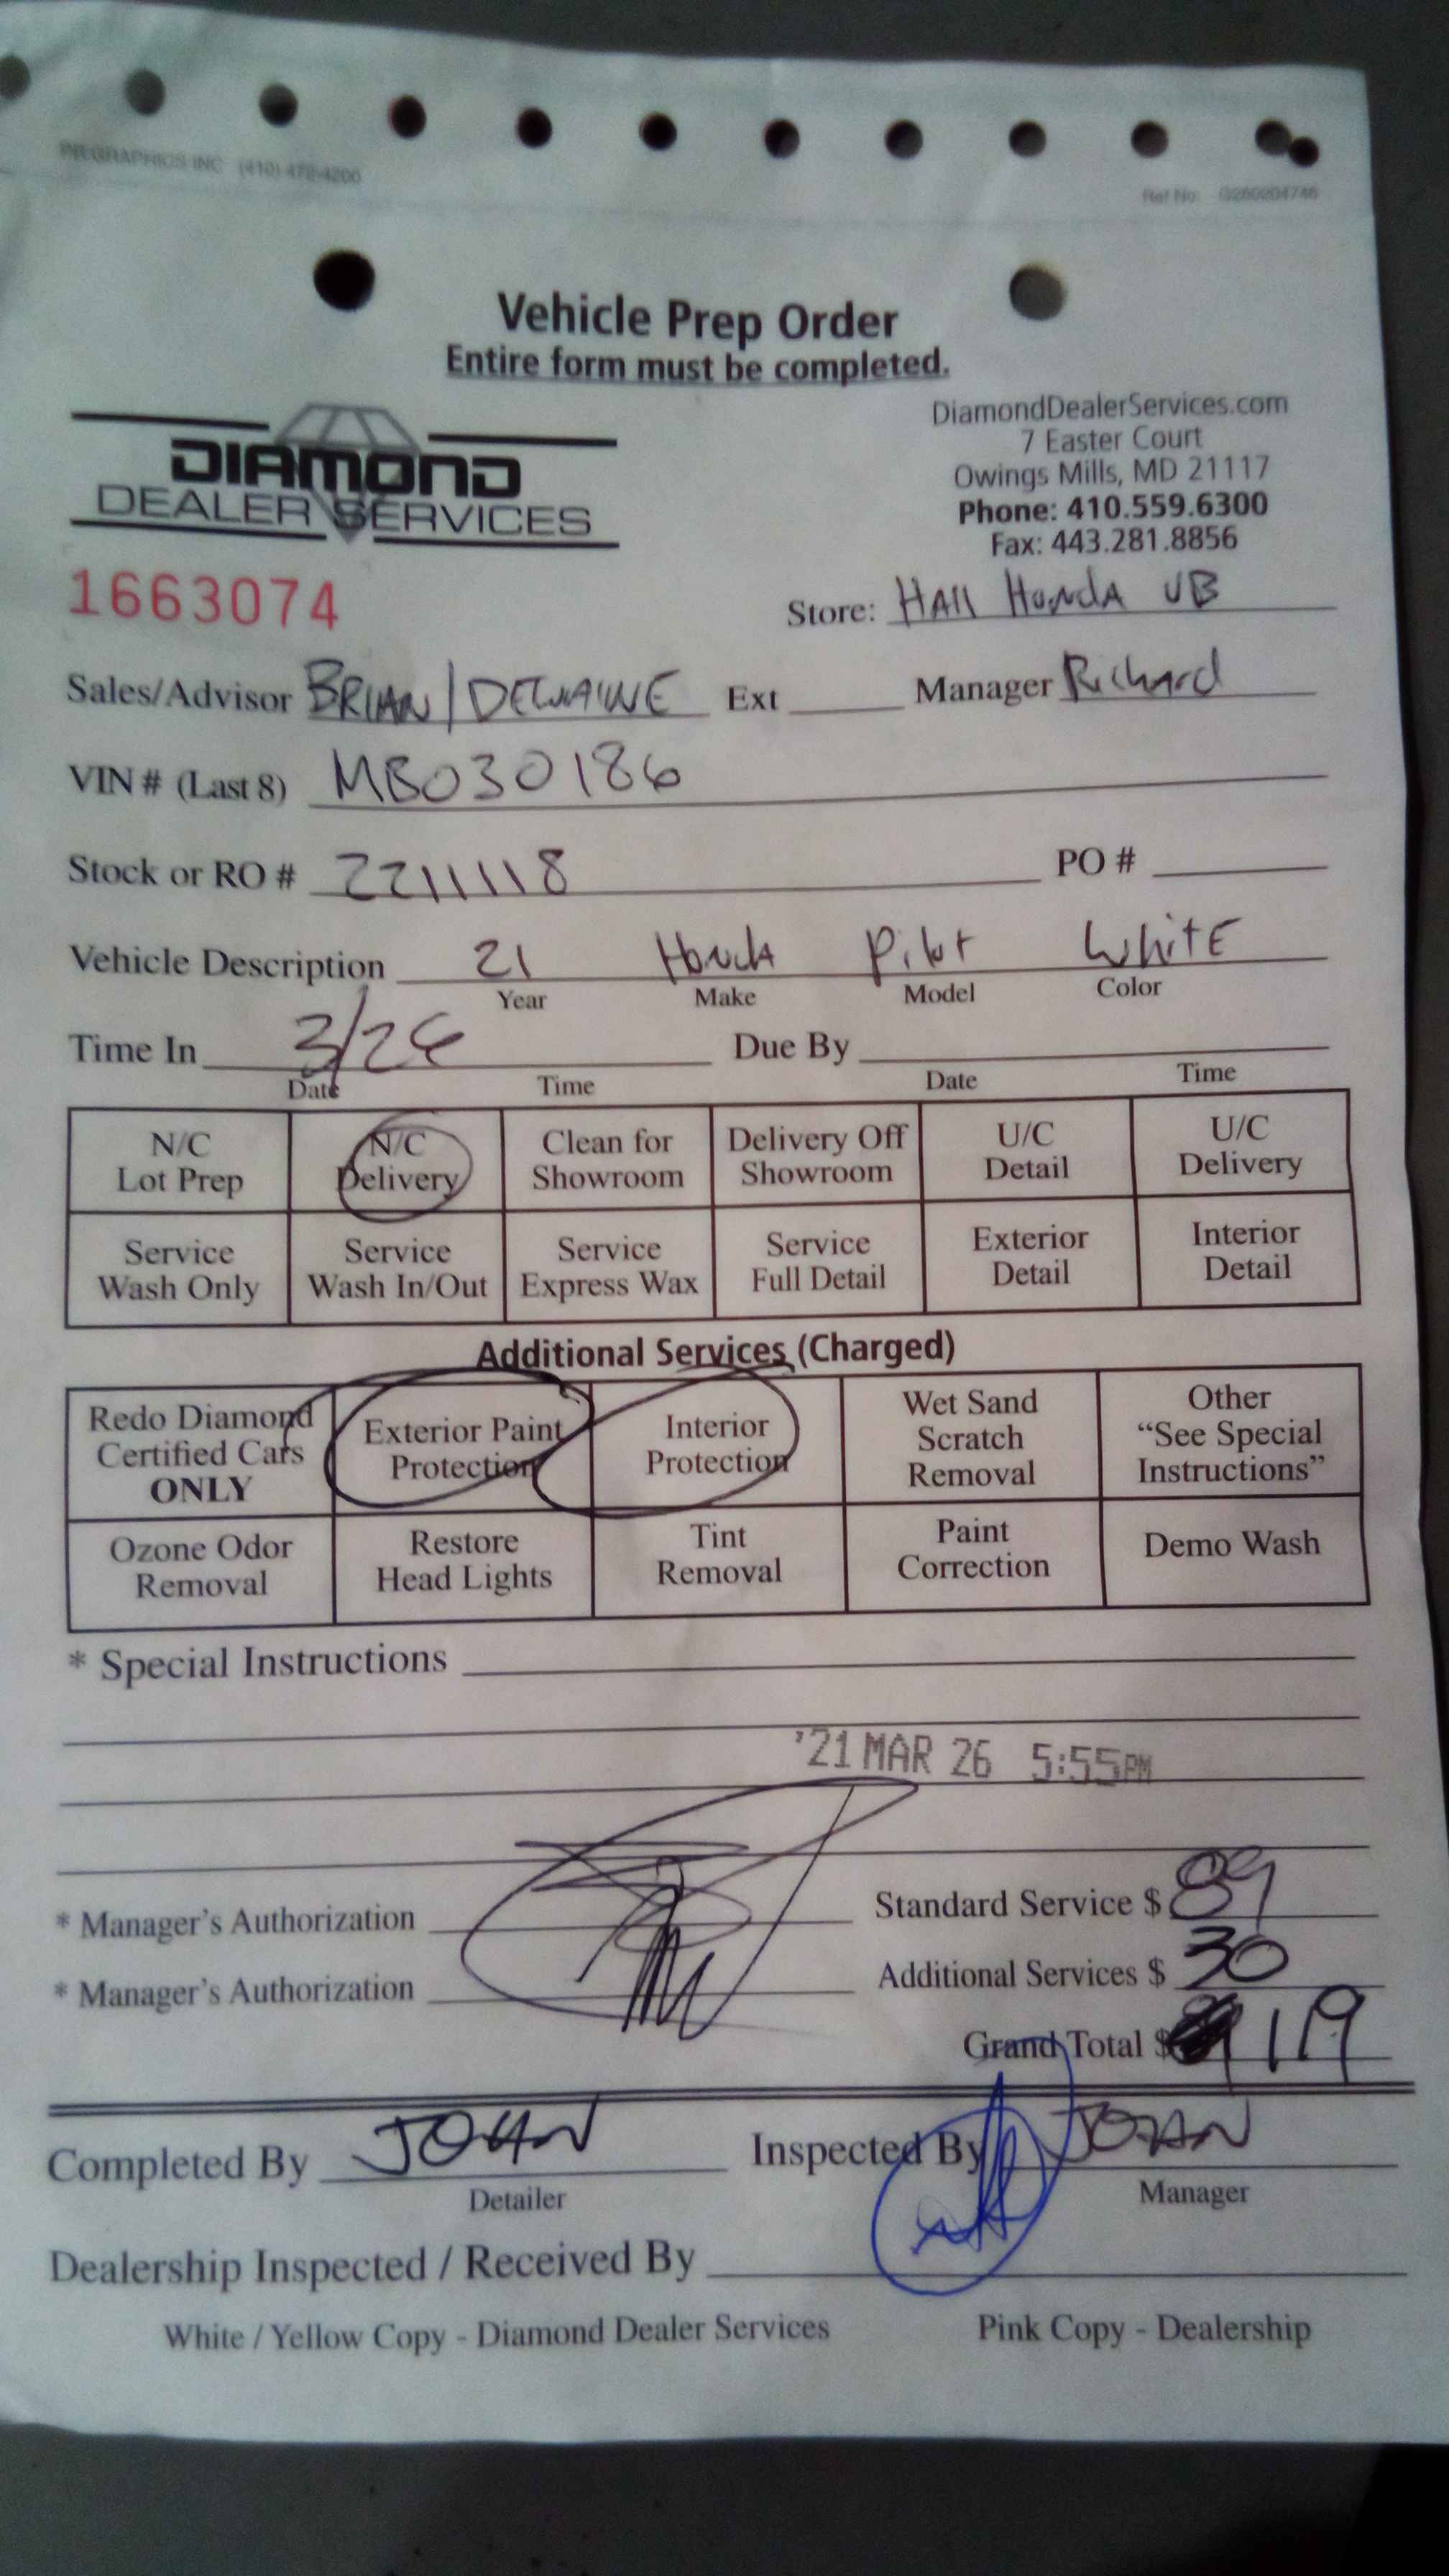 PR GRAPHICS INC (410) 472-4200
Ref No: G260204746
Vehicle Prep Order
Entire form must be completed.
DIAMOND
DEALER SERVICES
DiamondDealerServices.com
7 Easter Court
Owings Mills, MD 21117
Phone: 410.559.6300
Fax: 443.281.8856
1663074
Store: HAll HondA VB
Sales/Advisor BRIAN / DEWAINE Ext Manager Richard
VIN # (Last 8) MB030186
Stock or RO # 2211118 PO #
Vehicle Description 21 Honda Pilot WhitE
Year Make Model Color
Time In 3/26 Due By
Date Time Date Time
N/C Lot Prep N/C Delivery Clean for Showroom Delivery Off Showroom U/C Detail U/C Delivery
Service Wash Only Service Wash In/Out Service Express Wax Service Full Detail Exterior Detail Interior Detail
Additional Services (Charged)
Redo Diamond Certified Cars ONLY Exterior Paint Protection Interior Protection Wet Sand Scratch Removal Other "See Special Instructions"
Ozone Odor Removal Restore Head Lights Tint Removal Paint Correction Demo Wash
* Special Instructions
'21 MAR 26 5:55PM
* Manager's Authorization Standard Service $ 89
* Manager's Authorization Additional Services $ 30
Grand Total $ 119
Completed By JOHN Inspected By JOHN
Detailer Manager
Dealership Inspected / Received By
White / Yellow Copy - Diamond Dealer Services Pink Copy - Dealership